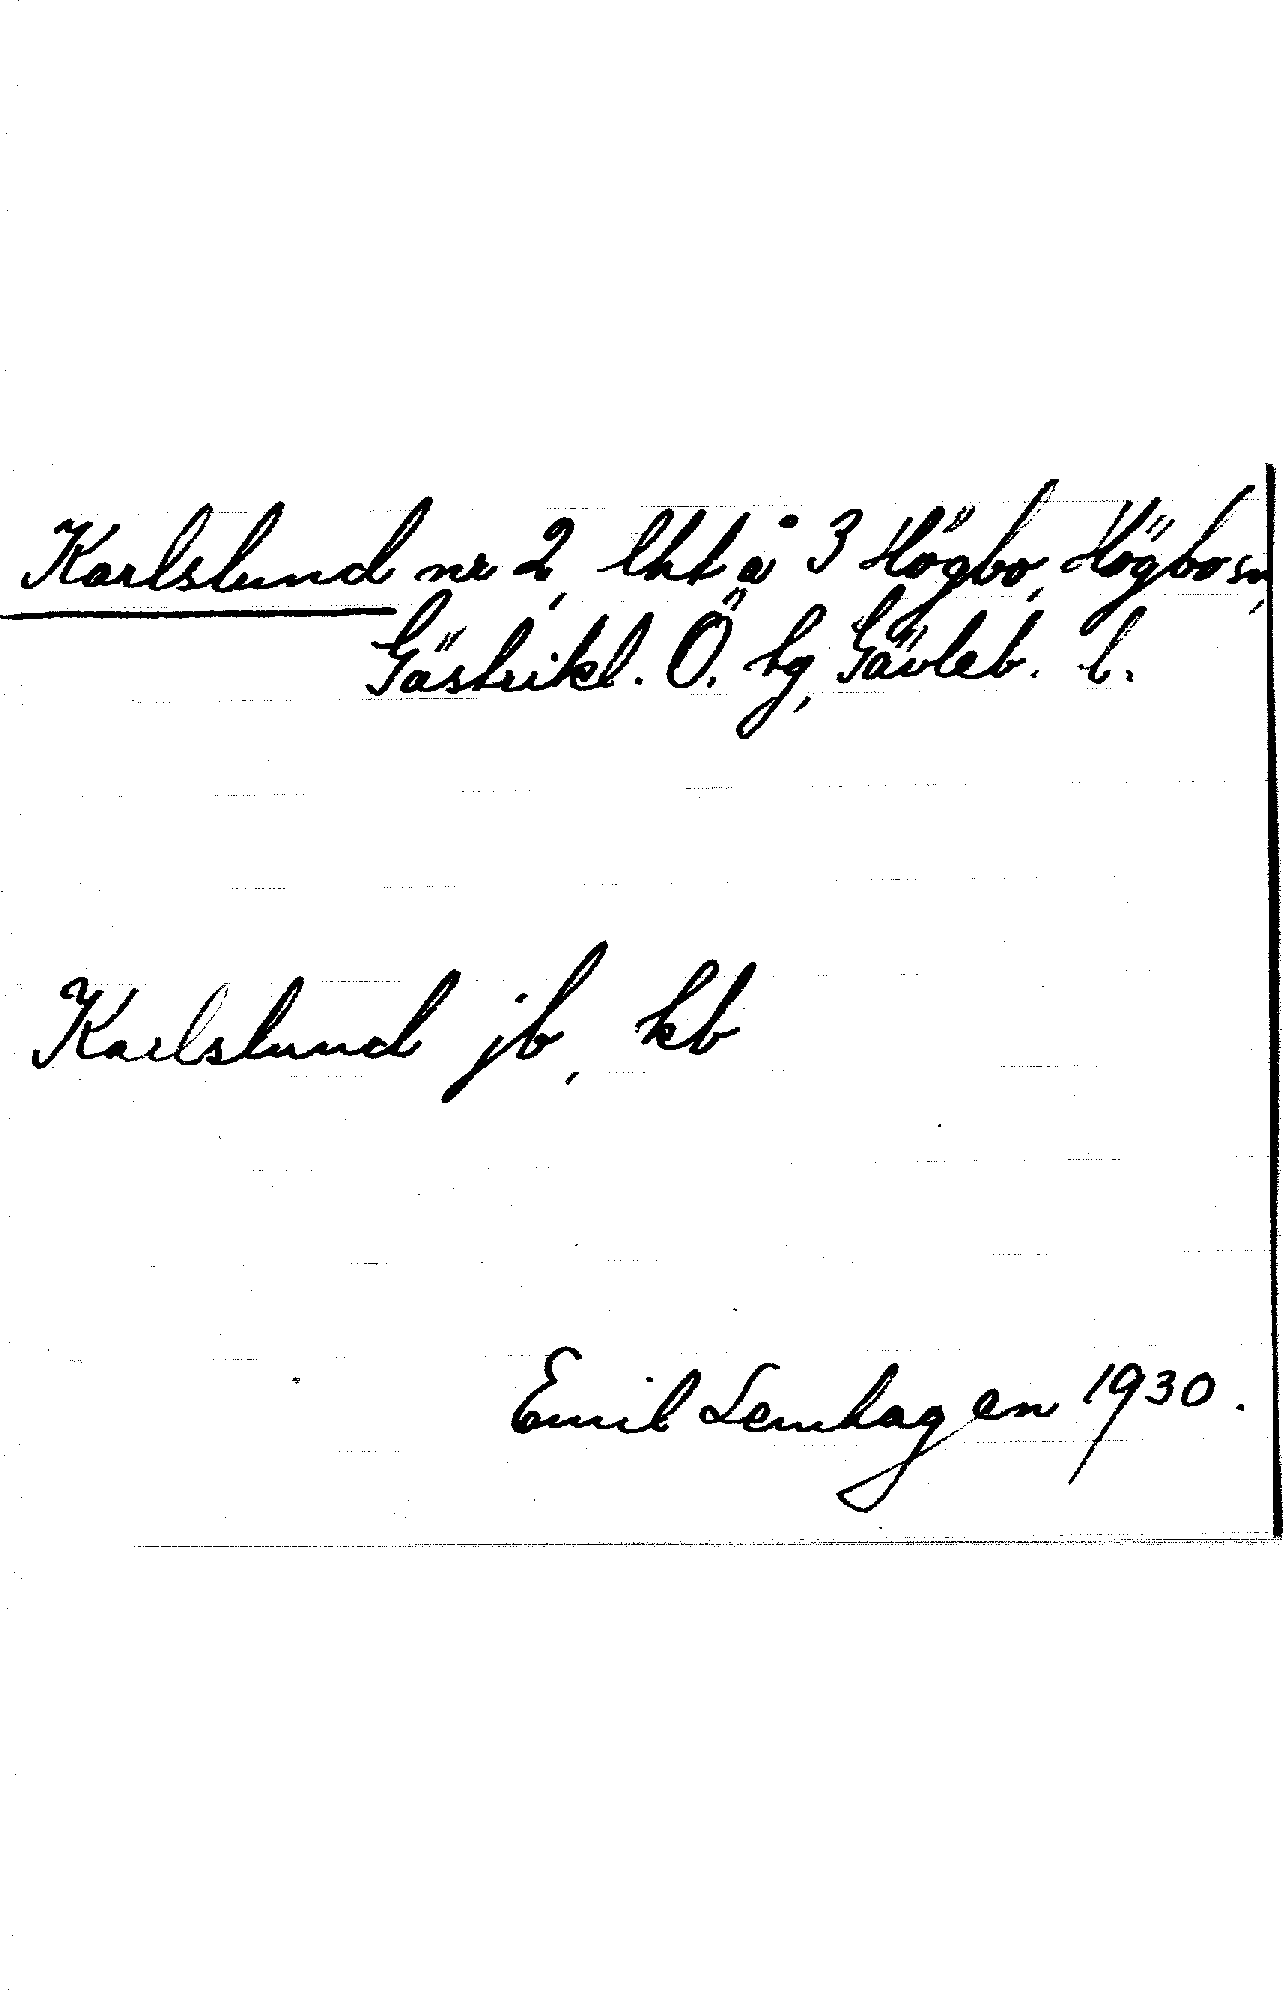 Karlslund nr 2, lht å 3 Högbo, Högbo sn,
Gästrikl. Ö. tg, Gävleb. l.
Karlslund jb, kb
Emil Lemhagen 1930.